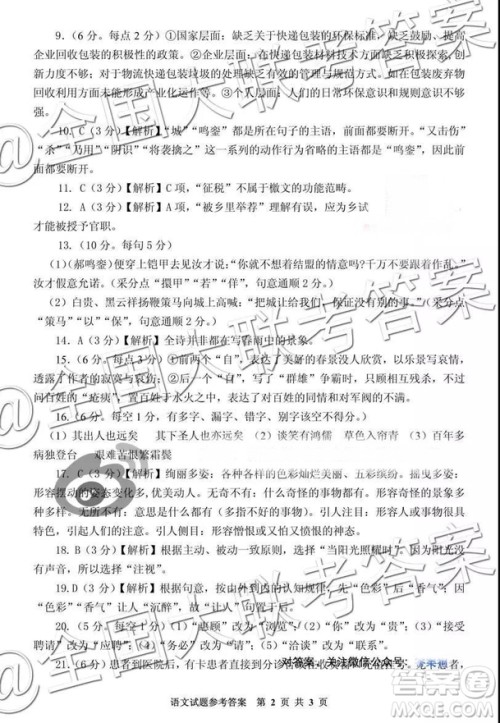 9.（6分。每点2分）①国家层面：缺乏关于快递包装的环保标准，缺乏鼓励、提高
企业回收包装的积极性的政策。②企业层面：在快递包装材料技术方面缺乏创新的动
能；对于物流快递包装垃圾的处理缺乏有效的管理与规范。如在包装废弃物
回收利用方面未能形成产业化运作等。③个人层面：人们的日常环保意识与意识不够
强。
10. C（3分）【解析】“城”“鸣銮”都是所在句子的主语，前面要断开。“又击伤”
“杀”“乃用”“阴识”“将袭擒之”这一系列的动作行为省略的主语都是“鸣銮”，因此
前面都要断开。
11. C（3分）【解析】C项，“征税”不属于檄文的功能范畴。
12. A（3分）【解析】A项，“被乡里举荐”理解有误，应为乡试
才能被授予官职。
13.（10分。每句5分）
（1）(郝鸣銮)便穿上铠甲去见汝才说：“你就不想着结盟的情意吗?千万不要跟着作乱。”
汝才假意允诺。（采分点“擐甲”“若”“诺”，句意通顺2分）
（2）白贵、黑云祥扬鞭策马向城上高喊：“把城让给我们，保证没有别的事。”（采分点
“策马”“以”“保”，句意通顺2分）
14. A（3分）【解析】全诗并非都在写春雨中的景象。
15.（6分。每点3分）①前面两个“自”，表达了美好的春景没人欣赏，以乐景写哀情，
透露了作者的寂寞与哀伤；②后一个“自”，写了“群雄”争霸时，只顾自己利益，无视
百姓的“疮痍”，置百姓于水火之中，表达了对百姓的同情和对军阀的不满。
16.（6分。每空1分，有多字、漏字、错字、别字该空不得分）
（1）其出人也远矣 其下圣人也亦远矣 （2）谈笑有鸿儒 草色入帘青 （3）百年多
病独登台 艰难苦恨繁霜鬓
17. C（3分）【解析】绚丽多姿：各种各样的色彩灿烂美丽、五彩缤纷。摇曳多姿：
形容摆动的姿态变化多,优美好看。无奇不有：什么奇怪的事物都有。形容稀奇古怪的事
物很多。不以为意：意思是不把它放在心上，表示对人、对事抱轻视态度。引人注目：
引起人们的注意。令人侧目：形容令人畏惧而又愤恨的神态。
18. B（3分）【解析】根据主动、被动一致的原则，选择“当阳光照耀时”。因为阳光没
有声音，所以选择“注视”。
19.D（3分）【解析】根据由外到内的认知规律，先“色彩”后“香气”；因
“色彩”“香气”让人“沉醉”，故而“忘了赞叹”。
20.（5分。每空1分）（1）“惠顾”改为“浏览”；（2）“你”改为“您”；（3）“接纳
聘请”改为“应聘”；（4）“务必”改为“请”；（5）“洽谈”改为“联系”。
21.（6分）患者到医院后，有卡患者直接到分诊
对答案，关注微信公众号：
语文试题参考答案 第 2 页 共 3 页
@全国大联考答案
@全国大联考答案